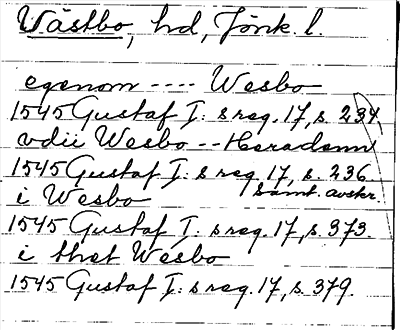 Västbo, hd, Jönk. l.
egenom ---- Wesbo
1545 Gustaf I: s reg. 17, s. 234.
vdii Wesbo -- Heradenn
1545 Gustaf I: s reg. 17, s. 236
samt. avskr.
i Wesbo
1545 Gustaf I: s reg. 17, s. 373.
i thet Wesbo
1545 Gustaf I: s reg. 17, s. 379.